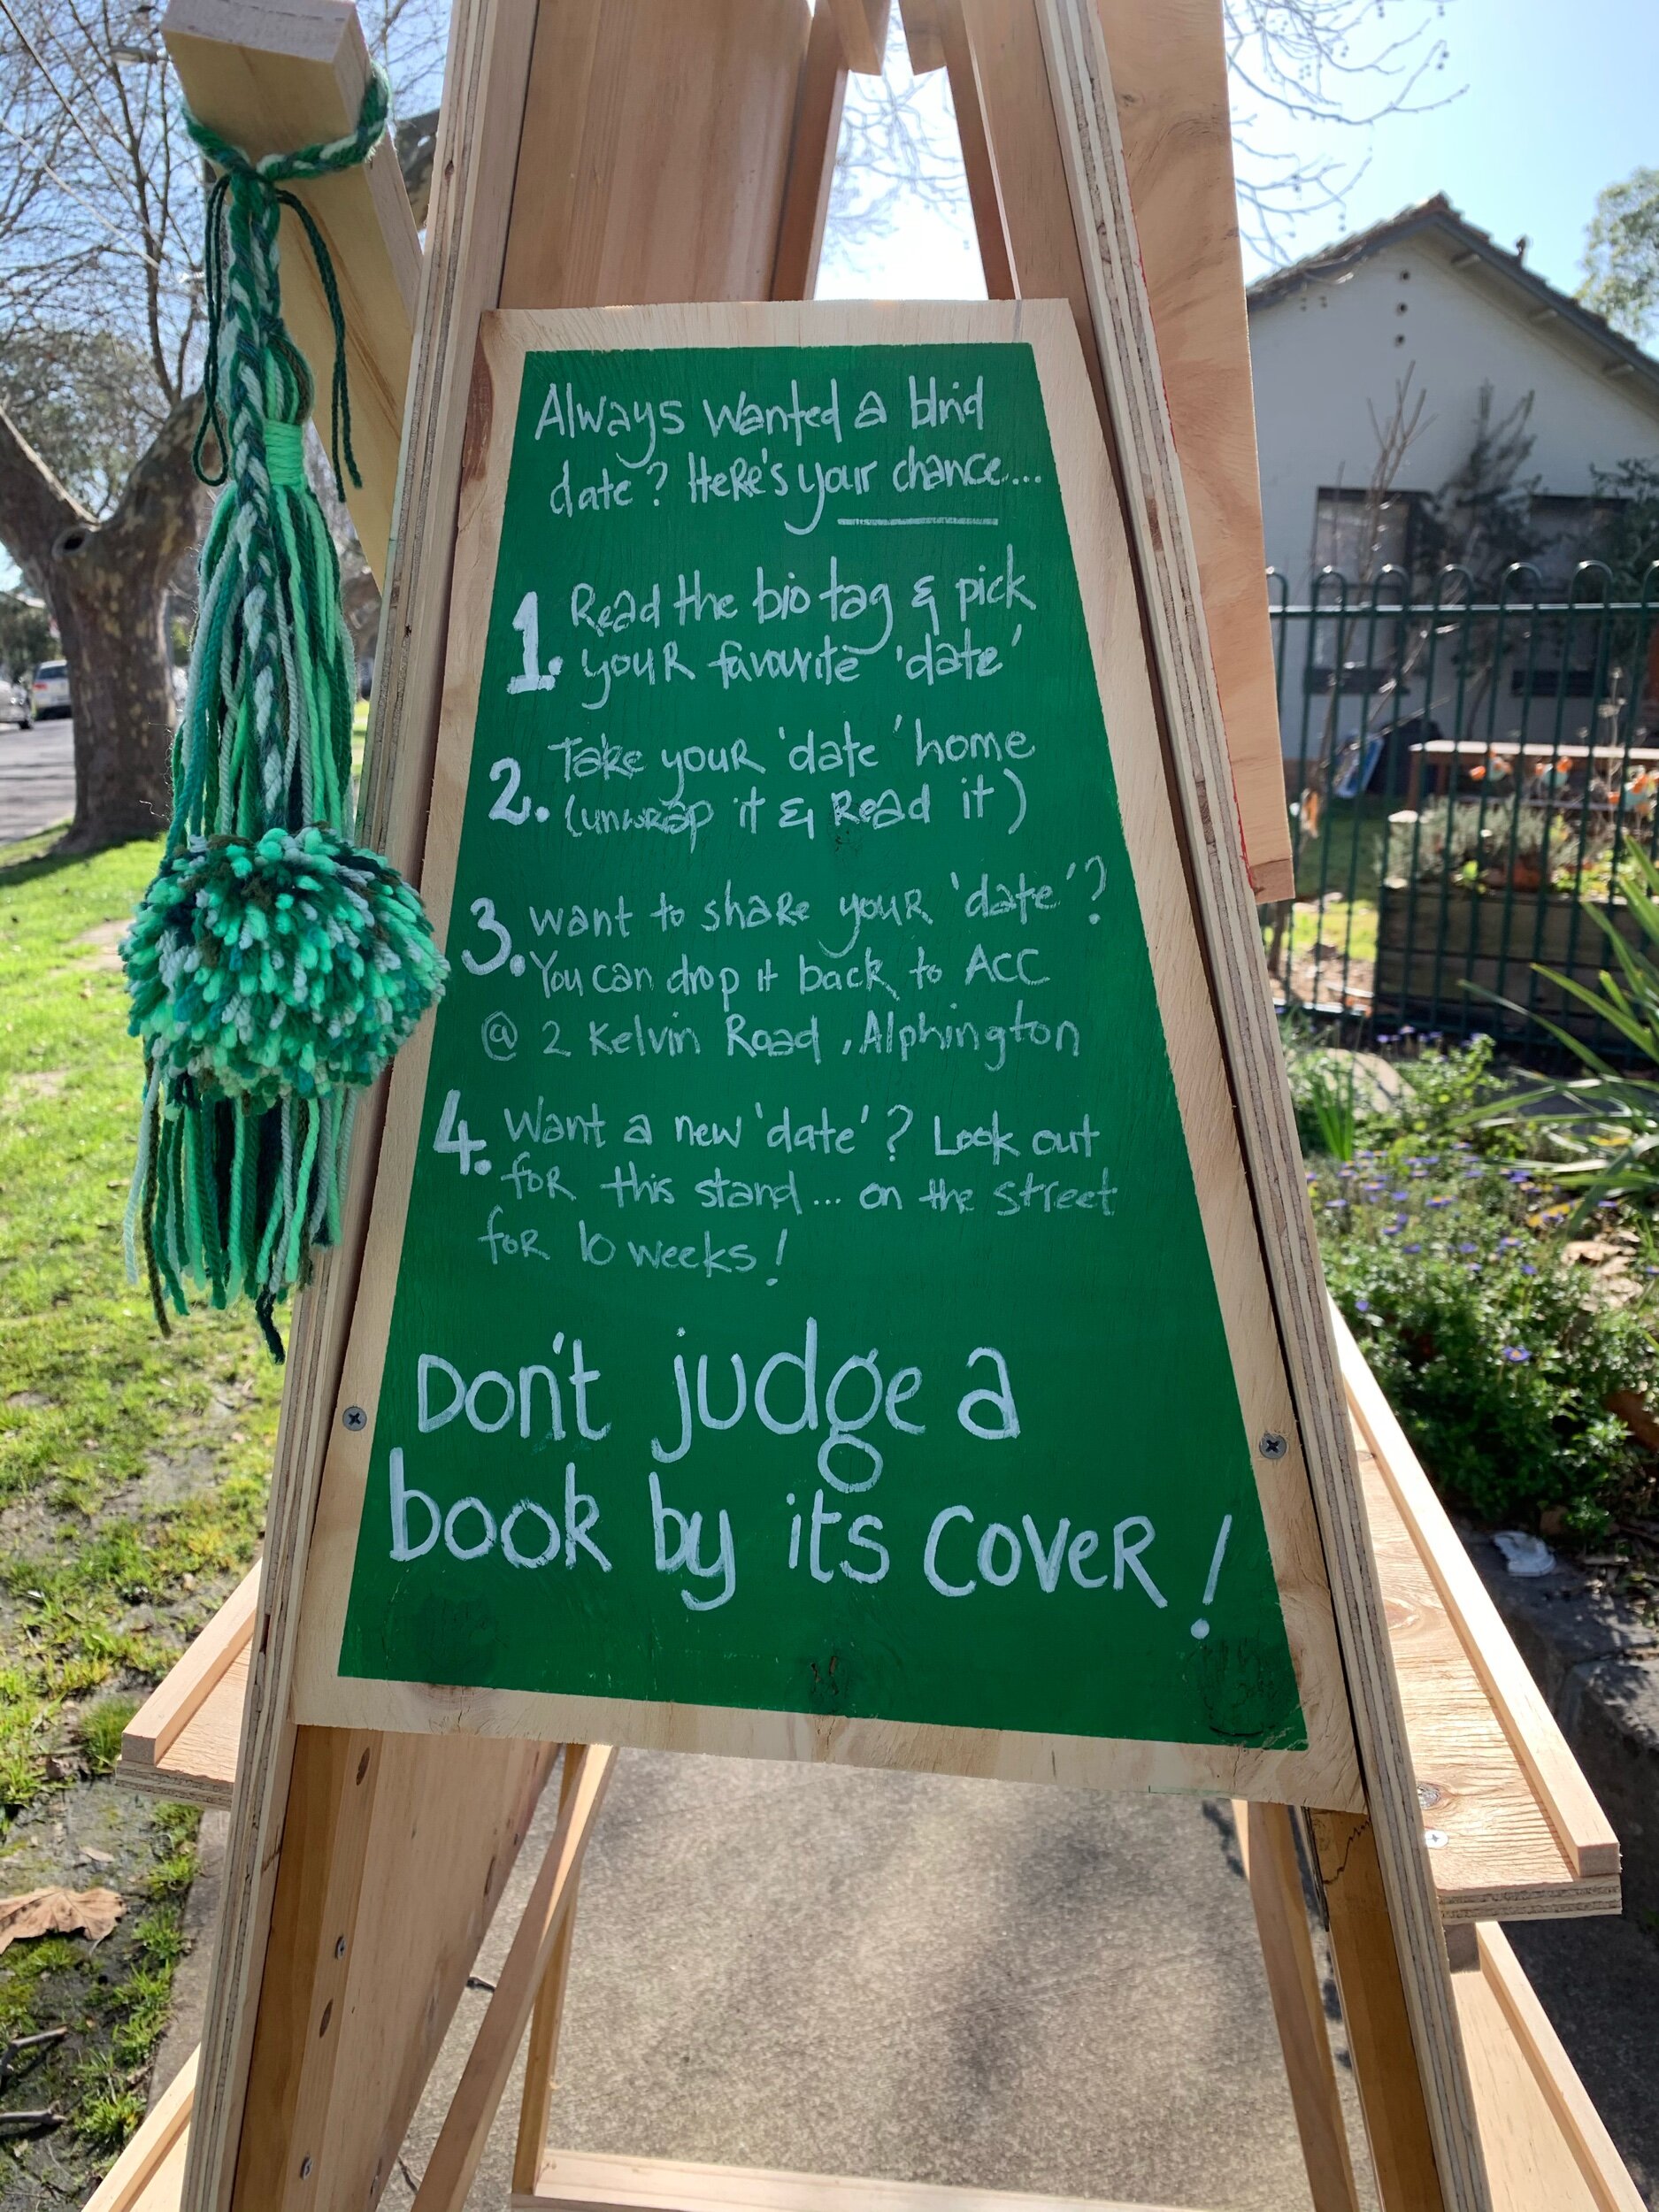 Always wanted a blind
date? Here's your chance...
1. Read the bio tag & pick
your favourite 'date'
2. Take your 'date' home
(unwrap it & Read it)
3. want to share your 'date'?
You can drop it back to ACC
@ 2 Kelvin Road, Alphington
4. Want a new 'date'? Look out
for this stand... on the street
for 10 weeks!
Don't judge a
book by its cover!